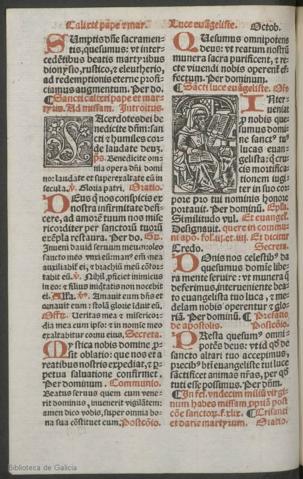 Calixti pape τ mar.
Luce euãgeliste.
Octob.
Sumptis dñe sacramen-
tis, quesumus: vt inter-
cedẽtibus beatis martyribus
dionysio, rustico, τ eleutherio,
ad redemptionis eterne profi-
ciamus augmentum. Per do.
Sancti calixti pape et mar-
tyris. Ad missam. Introitus.
Sacerdotes dei be
nedicite dñm: san
cti τ humiles cor
de laudate deuz.
ps. Benedicite om-
nia opera dñi domi
no: laudate et superexaltate eũ in
secula. Gloria patri. Oratio.
Deus q̃ nos conspicis ex
nostra infirmitate defi-
cere, ad amorẽ tuum nos mise-
ricorditer per sanctorũ tuorũ
exẽpla restaura. Per do.
Inueni dauid seruum meũ: oleo
sancto meo vnxi eum: manꝰ eñ mea
auxiliabit̃ ei, τ brachiũ meũ cõfor-
tabit eũ. Nihil ꝓficiet inimicus
in eoꝫ: τ filius iniq̃tatis non nocebit
ei. Alla. Amauit eum dñs et
ornauit eum: stolã glorie induit eũ.
Offer. Veritas mea τ misericor-
dia mea cum ipso: τ in nomie meo
exaltabitur cornu eius. Secreta.
Mystica nobis domine pro-
sit oblatio: que nos et a
reatibus nostris expediat, τ p-
petua saluatione confirmet.
Per dominum. Communio.
Beatus seruus quem cum vene-
rit dominus, inuenerit vigilãtem:
amen dico vobis, super omnia bo-
na sua cõstituet eum. Postcõio.
Quesumus omnipotens
deus: vt reatum nostrũ
munera sacra purificent, τ re-
cte viuendi nobis operent̃ ef-
fectum. Per dominum.
Sãcti luce euãgeliste. Oro.
Inter
ueniat
p nobis que-
sumus domi
ne sanctꝰ tuꝰ
lucas euan-
gelista: q̃ cru-
cis mortifica-
tionem iugi-
ter in suo cor-
pore pro tui nominis honore
portauit. Per dominũ. Epła.
Similitudo vul. Et euangel.
Designauit. quere in commu-
Credo. Secreta.
Donis nos celestibꝰ da
quesumus domie libe-
ra mente seruire: vt munera q̃
deferimus, interueniente bea-
to euangelista tuo luca, τ me-
delam nobis operentur τ glo-
riã. Per dominũ. Prefatio
de apostolis. Postcõio.
Presta quesumꝰ omni-
potẽs deus: vt id qð de
sancto altari tuo accepimus,
precibꝰ bti euangeliste tui luce
sãctificet animas nr̃as, per qð
tuti esse possimus. Per dñm.
In fel. vndecim miliũ virgi-
num habes missam ppriã post
cõe sanctoꝝ. Crisanti
et darie martyrum. Oratio.
Biblioteca de Galicia